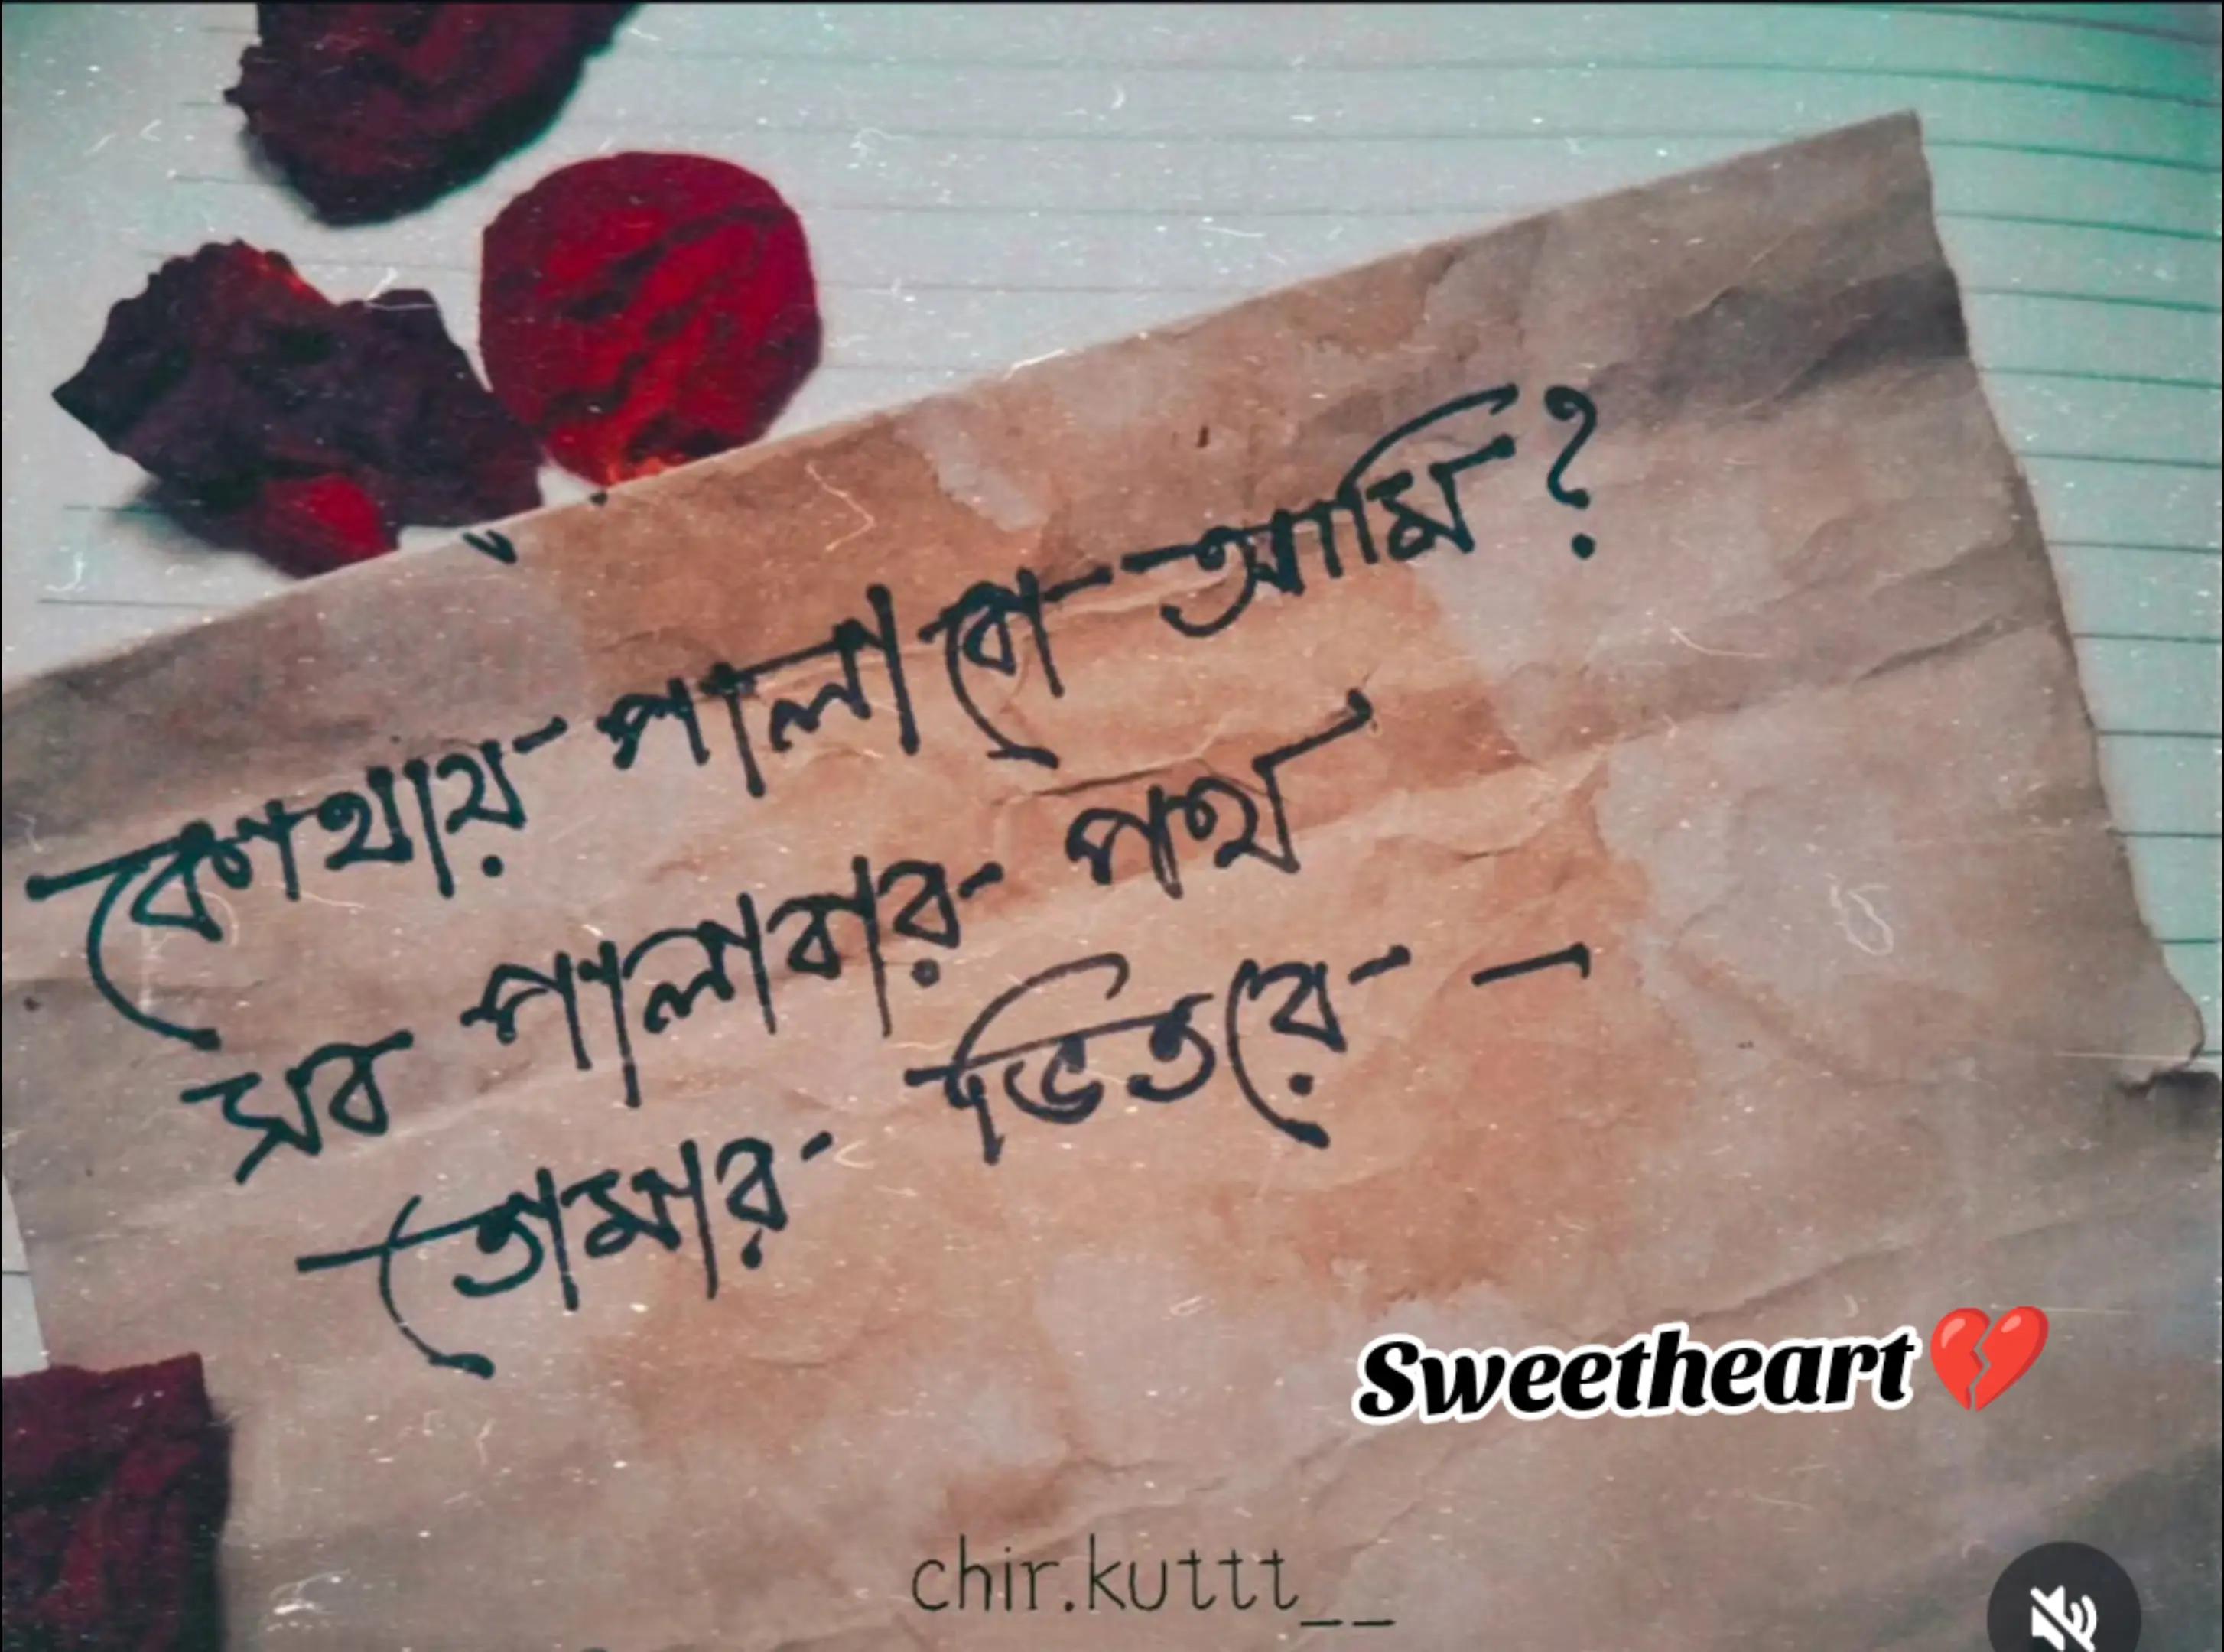 কোথায় পালাবো আমি?
সব পালাবার পথ
তোমার ভিতরে - -
Sweetheart💔
chir.kuttt__